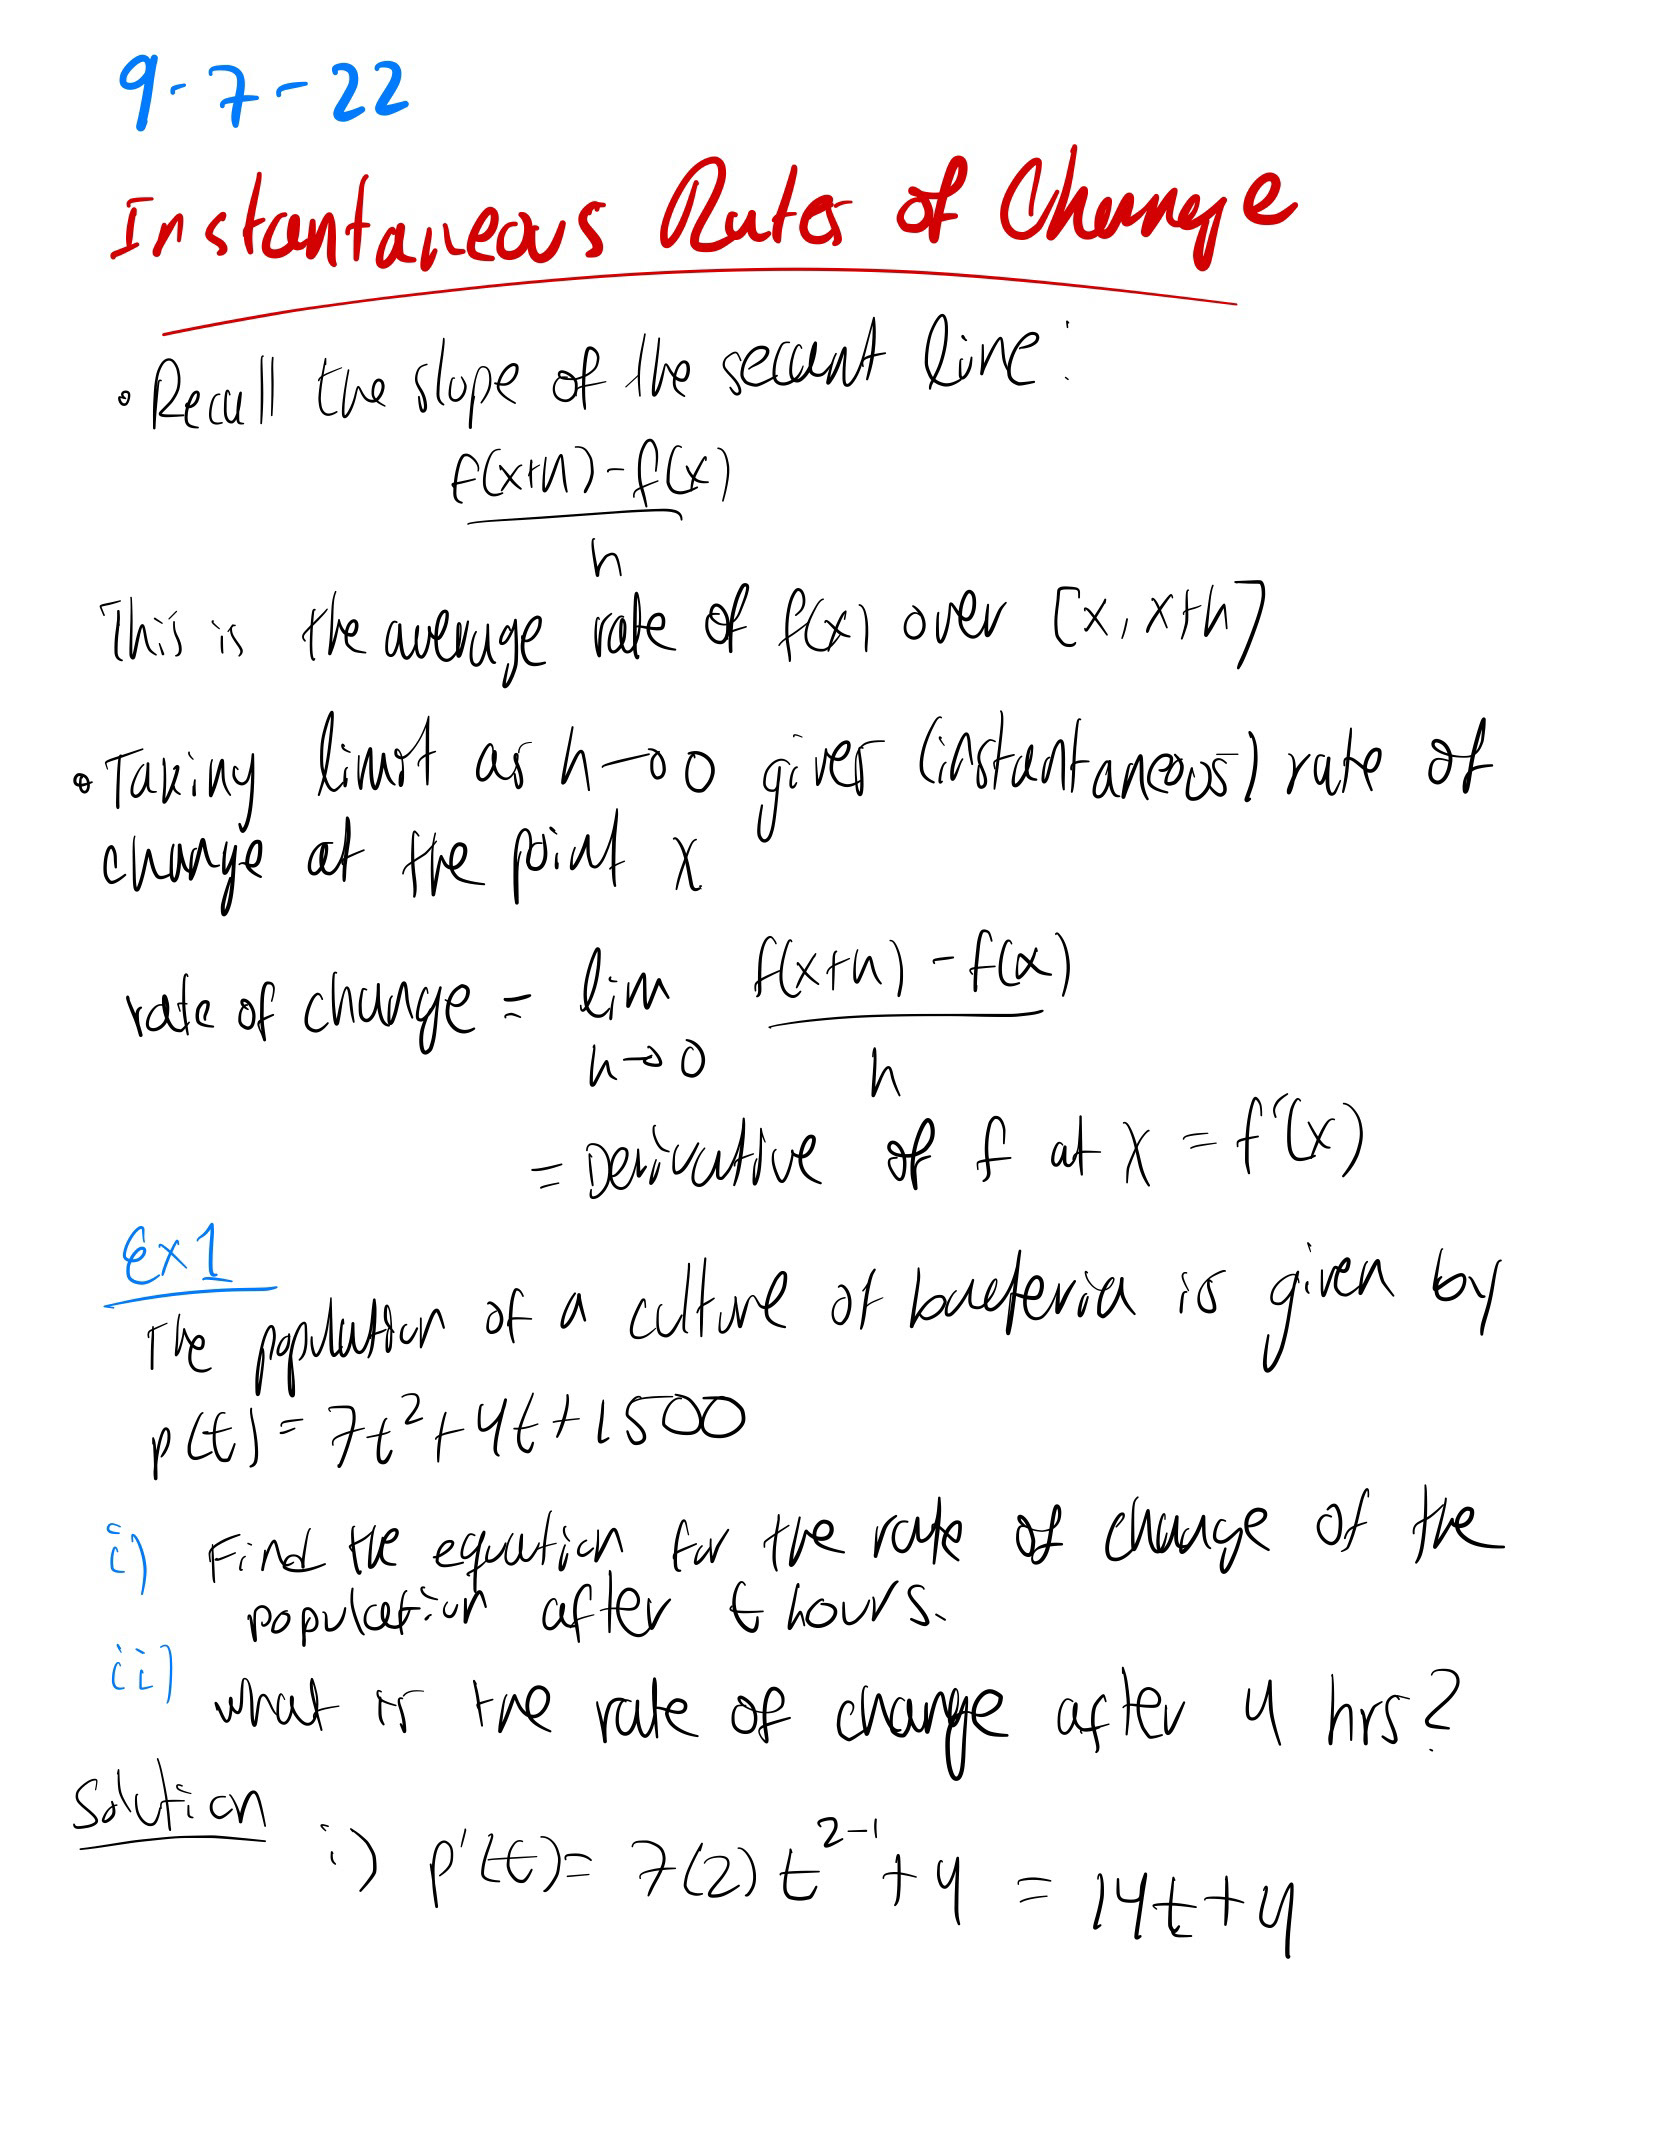 9-7-22
Instantaneous Rates of Change
• Recall the slope of the secant line:
f(x+h)-f(x)
h
This is the average rate of f(x) over [x, x+h]
• Taking limit as h→0 gives (instantaneous) rate of
change at the point x
rate of change = lim f(x+h) - f(x)
h→0 h
= Derivative of f at x = f'(x)
Ex1
The population of a culture of bacteria is given by
p(t) = 7t²+4t+1500
i) Find the equation for the rate of change of the
population after t hours.
ii) what is the rate of change after 4 hrs?
Solution i) p'(t)= 7(2)t²⁻¹+4 = 14t+4